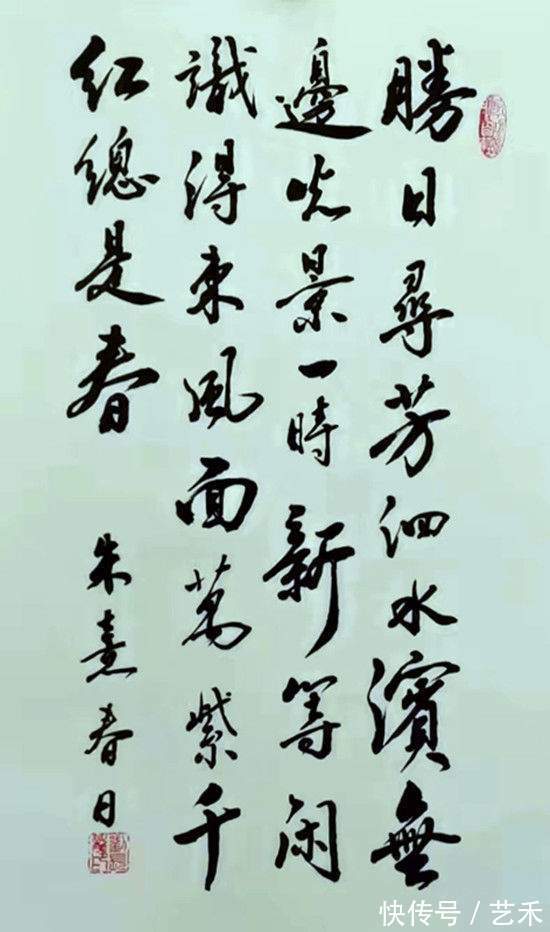 勝日尋芳泗水濱無
邊光景一時新等闲
識得東風面萬紫千
紅總是春
朱熹春日
快传号／艺禾